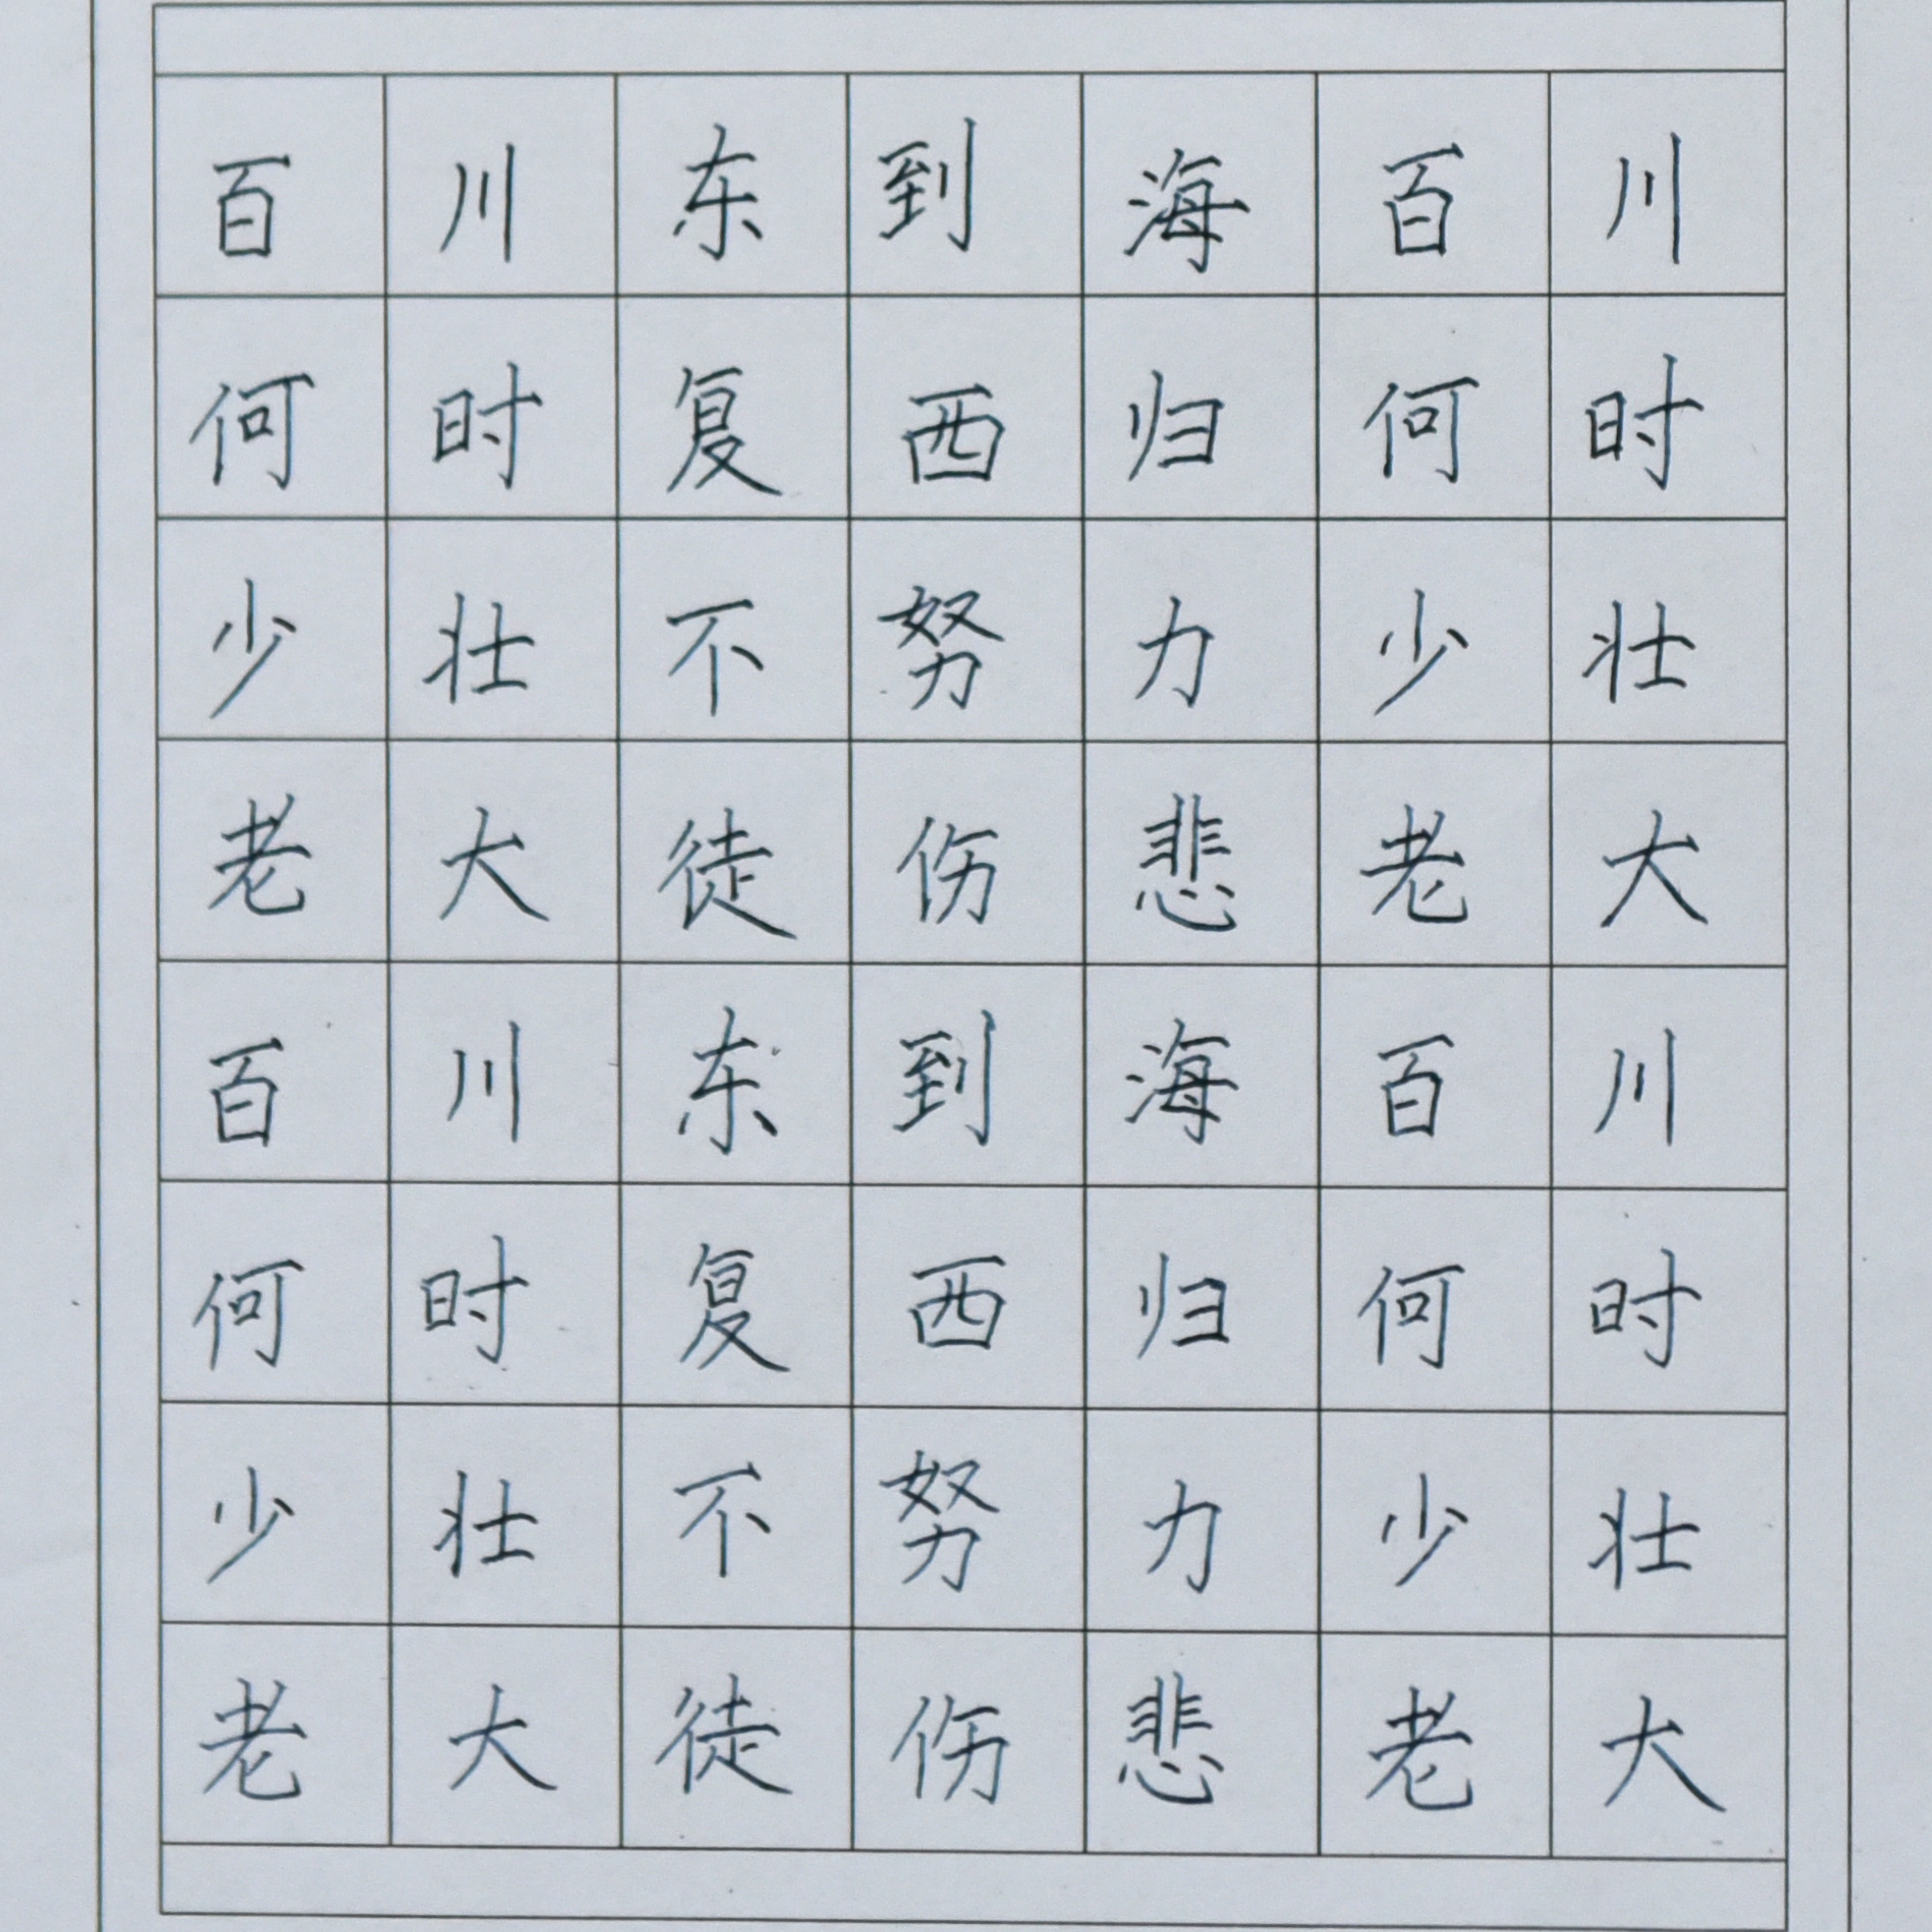 百川东到海百川
何时复西归何时
少壮不努力少壮
老大徒伤悲老大
百川东到海百川
何时复西归何时
少壮不努力少壮
老大徒伤悲老大